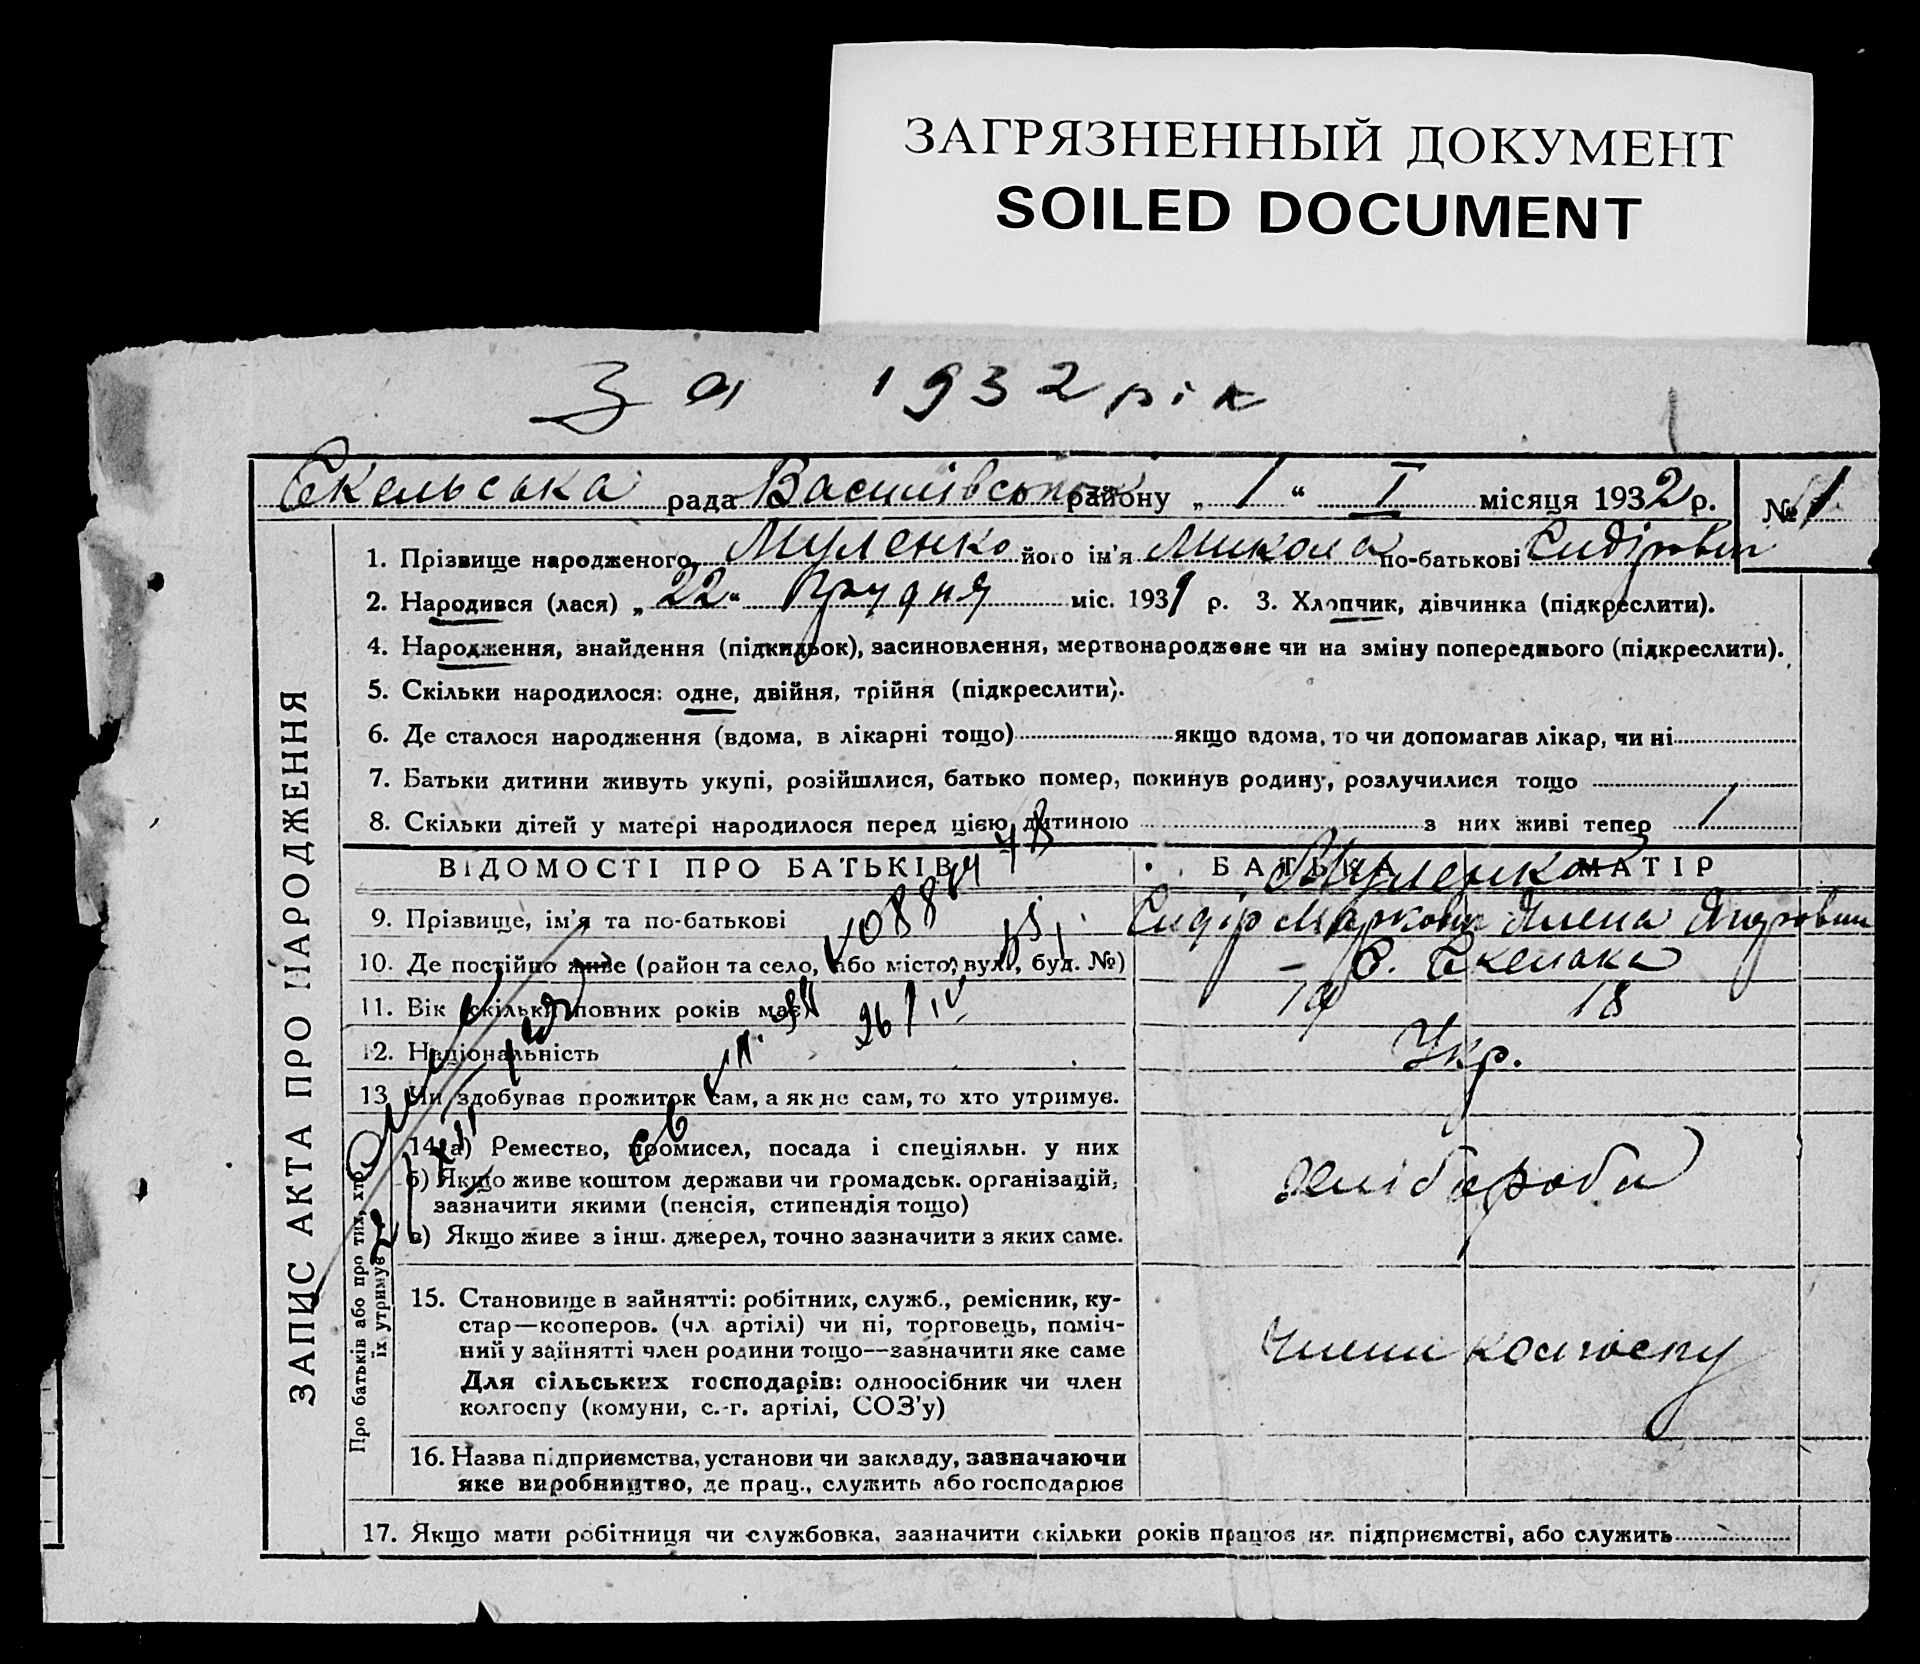 ЗАГРЯЗНЕННЫЙ ДОКУМЕНТ
SOILED DOCUMENT
За 1932 рік
Скельська рада Василівського району „ 1 “ I місяця 1932 р. № 1
ЗАПИС АКТА ПРО НАРОДЖЕННЯ
1. Прізвище народженого Муленко його ім'я Микола по-батькові Сидірович
2. Народився (лася) „ 22 “ Грудня міс. 1931 р. 3. Хлопчик, дівчинка (підкреслити).
4. Народження, знайдення (підкидьок), засиновлення, мертвонароджене чи на зміну попереднього (підкреслити).
5. Скільки народилося: одне, двійня, трійня (підкреслити).
6. Де сталося народження (вдома, в лікарні тощо) якщо вдома, то чи допомагав лікар, чи ні
7. Батьки дитини живуть укупі, розійшлися, батько помер, покинув родину, розлучилися тощо
8. Скільки дітей у матері народилося перед цією дитиною з них живі тепер 1
ВІДОМОСТІ ПРО БАТЬКІВ БАТЬКА МАТІР
Муленко
9. Прізвище, ім'я та по-батькові Сидір Маркович Илена
10. Де постійно живе (район та село, або місто, вул., буд. №) – С. Скелька
11. Вік скільки повних років має 19 18
26/IV
12. Національність Укр.
13. Чи здобував прожиток сам, а як не сам, то хто утримує.
Про батьків або про тих, хто
їх утримує
14. а) Ремество, промисел, посада і спеціяльн. у них
б) Якщо живе коштом держави чи громадськ. організацій,
зазначити якими (пенсія, стипендія тощо)
в) Якщо живе з інш. джерел, точно зазначити з яких саме.
хлібороби
15. Становище в зайнятті: робітник, служб., ремісник, ку-
стар—кооперов. (чл. артілі) чи ні, торговець, поміч-
ний у зайнятті член родини тощо—зазначити яке саме
Для сільських господарів: одноосібник чи член
колгоспу (комуни, с.-г. артілі, СОЗ'у)
члени колгоспу
16. Назва підприємства, установи чи закладу, зазначаючи
яке виробництво, де прац., служить або господарює
17. Якщо мати робітниця чи службовка, зазначити скільки років працює на підприємстві, або служить